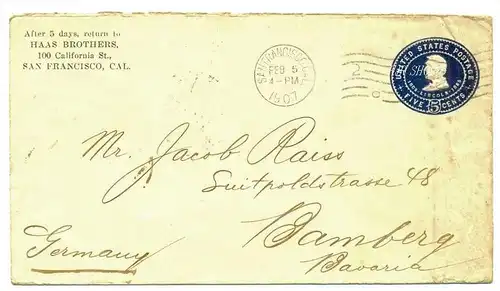 After 5 days, return to
HAAS BROTHERS,
100 California St.,
SAN FRANCISCO, CAL.
SAN FRANCISCO, CAL.
FEB 5
4-PM
1907
2
UNITED STATES POSTAGE
LINCOLN
FIVE 5 CENTS
Mr. Jacob Raiss
Luitpoldstrasse 48
Bamberg
Germany
Bavaria